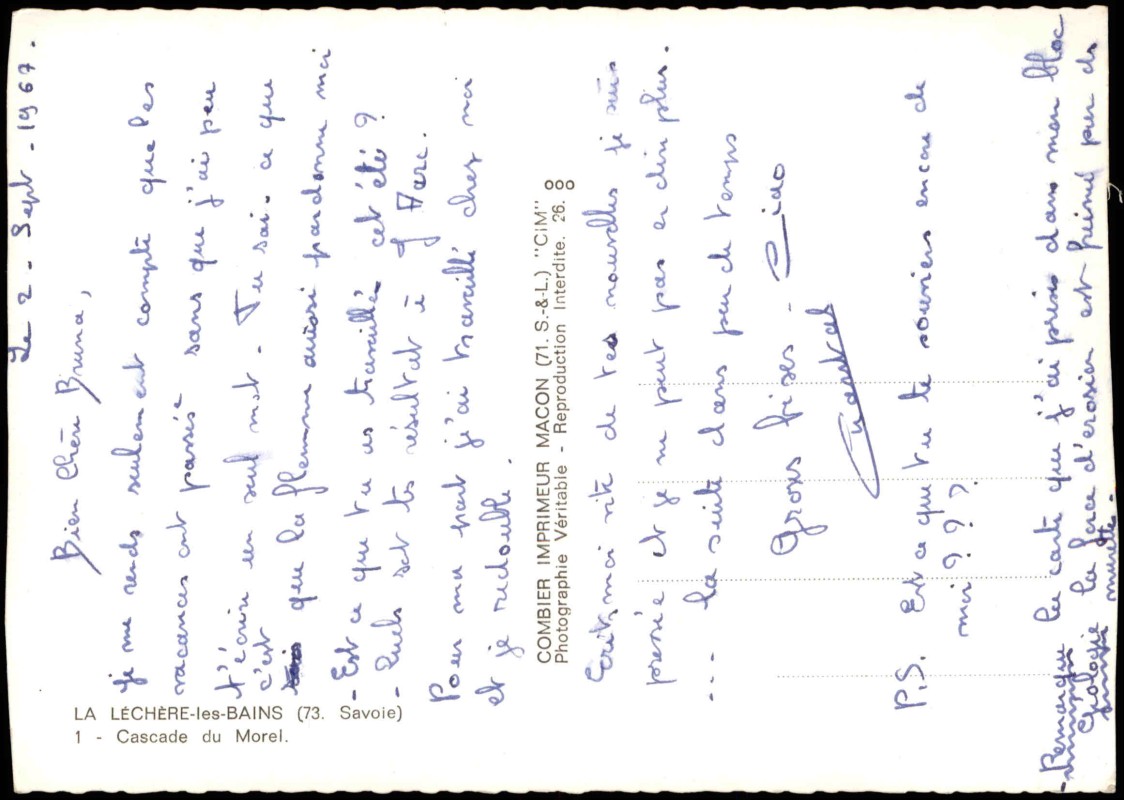 Le 2 - Sept - 1967.
Bien chère Bruna,
je me rends seulement compte que les
vacances ont passé sans que j'ai peu
t'écrire un seul mot - Tu sai. ce que
c'est que la flemme aussi pardonne moi
- Est ce que tu as travaillé cet été ?
- Quels sont tes résultat à
Pour ma part j'ai travaillé chez moi
et je redouble.
LA LÉCHÈRE-les-BAINS (73. Savoie)
1 - Cascade du Morel.
COMBIER IMPRIMEUR MACON (71. S.-&-L.) "CIM"
Photographie Véritable - Reproduction Interdite. 26.
Ecrits moi vite de tes nouvelles je suis
pressé et je ne peut pas en dire plus.
... la suite dans peu de temps
Gross bises - Ciao
P.S. Est ce que tu te souviens encore de
moi ? ? ?
- Remarque la carte que j'ai pris dans mon bloc
Géologie la force d'érosion est freiné par ds
murettes.